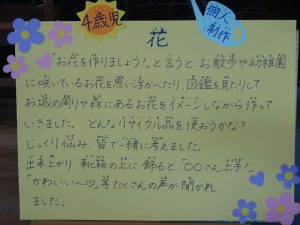 4歳児
個人
制作
花
「お花を作りましょう!」と言うとお散歩や幼稚園
に咲いているお花を思い浮かべたり、図鑑を見たりして
お城の周りや森にあるお花をイメージしながら作って
いきました。どんなリサイクル品を使おうかな?
じっくり悩み、皆で一緒に考えました。
出来上がり、靴箱の上に飾ると、「〇〇さん上手!」
「かわいい〜♡」等たくさんの声が聞かれ
ました。